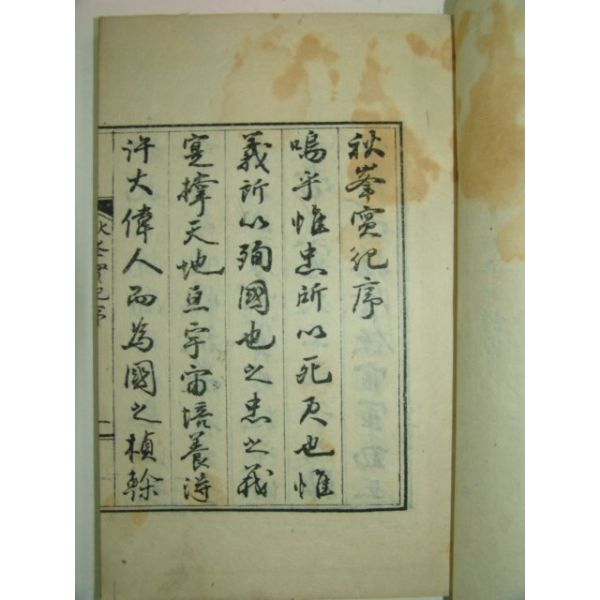 秋峯實紀序
嗚乎惟忠所以死君也惟
義所以殉國也之忠之義
寔撑天地亘宇宙培養得
許大偉人而為國之楨榦
秋峯實紀序